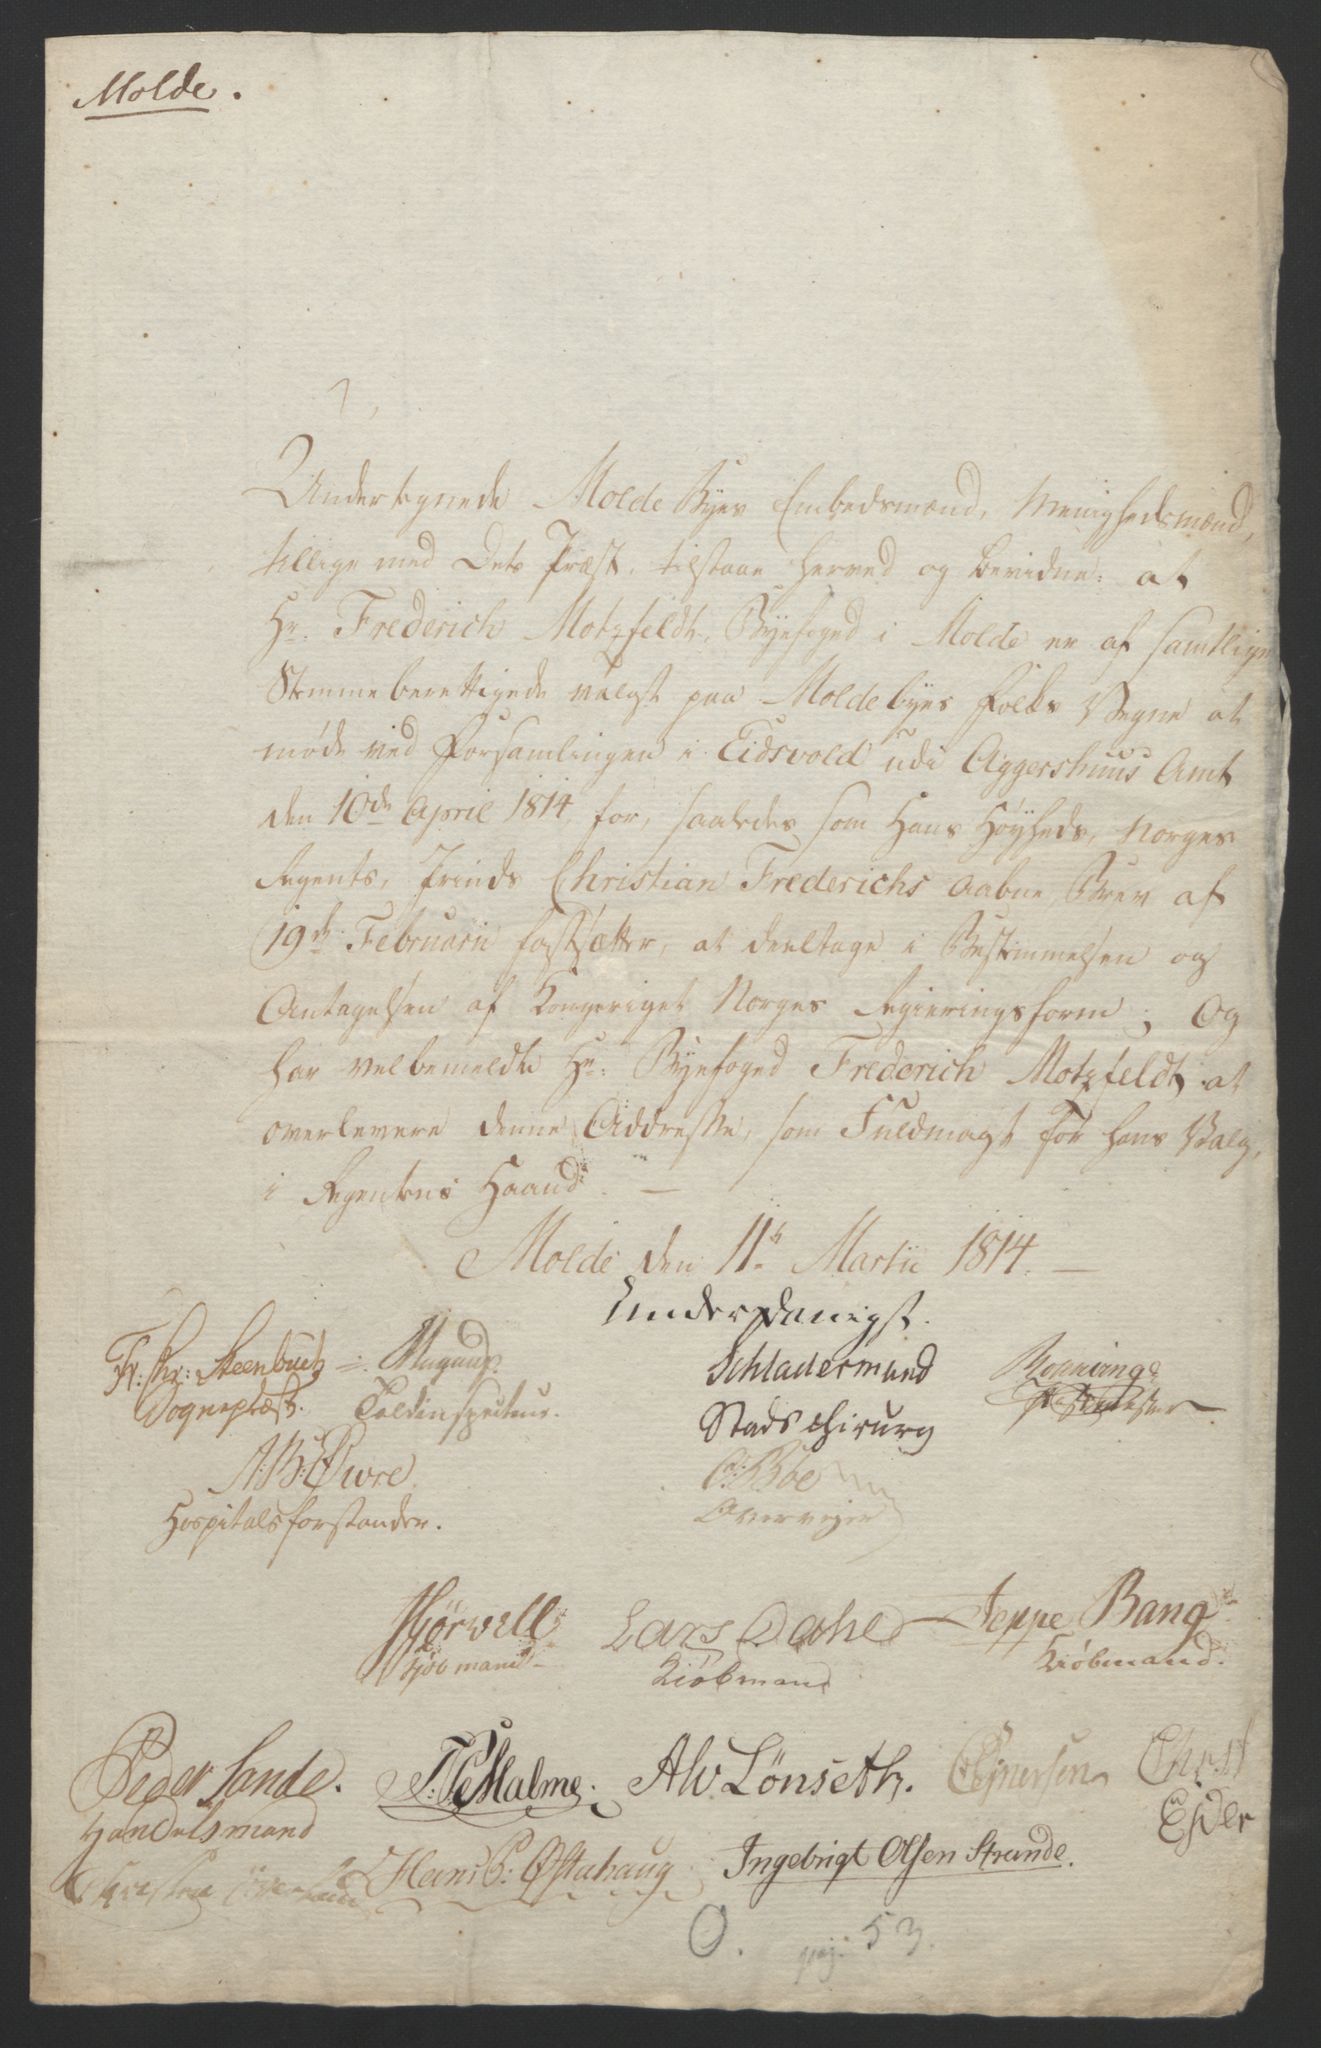 Molde.
Undertegnede Molde Byes Embedsmænd, Menighedsmænd,
tillige med dets Præst, tilstaae herved og bevidne: at
Hr. Frederich Motzfeldt, Byefoged i Molde er af samtlige
Stemmeberettigede valgt paa Molde byes Folks Vegne at
møde ved Forsamlingen i Eidsvold udi Aggershuus Amt
den 10de April 1814, for, saaledes som Hans Høyheds, Norges
Regents, Prinds Christian Frederichs aabne Brev af
19de Februarii fastsætter, at deeltage i Bestemmelsen og
Antagelsen af Kongeriget Norges Regieringsform; Og
har velbemeldte Hr. Byefoged Frederich Motzfeldt at
overlevere denne Addresse, som Fuldmagt for hans Valg,
i Regentens Haand. —
Molde den 11te Martii 1814. —
Underdanigst.
Fr: Chr: Steenbuch
Sognepræst.
Toldinspecteur.
Schladermund
Stads chirurg
Postmester
A: B: Øwre
Hospitalsforstander.
O: Boe
Overvejer
Hjørvell
Kjøbmand
Lars Dahl
Kiøbmand
Jeppe Bang
Kiøbmand.
Peder Sande.
Handelsmand
Malme.
Alv Lönseth.
Ejnersen
Christ
Hans P: Østahaug
Ingebrigt Olsen Strande.
O. pag: 53.